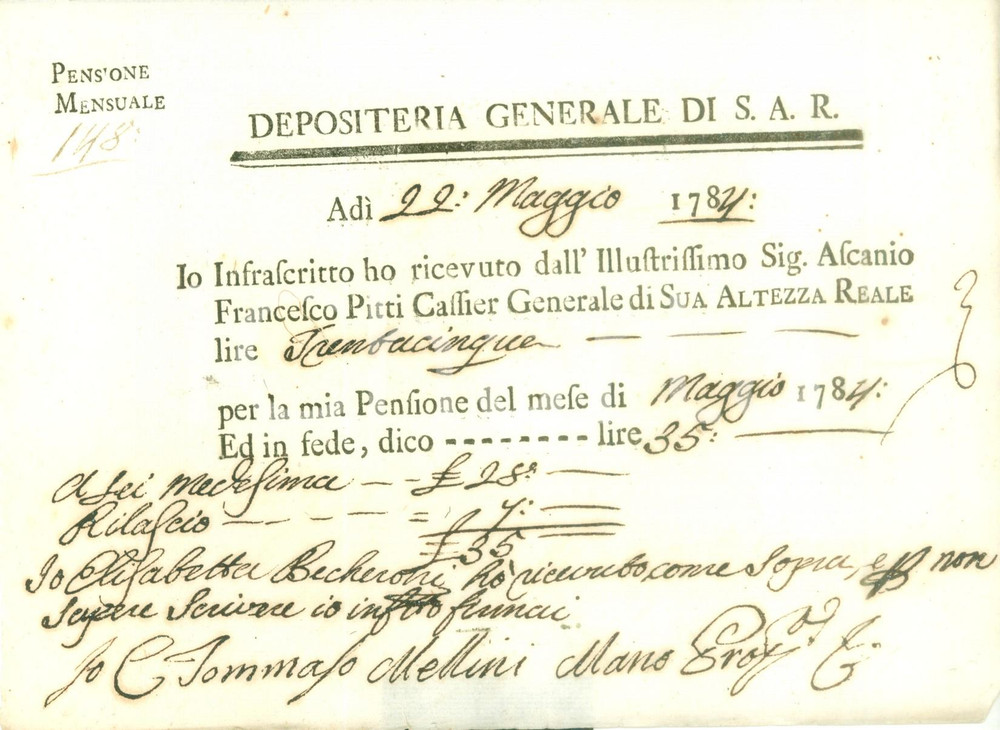 PENSIONE
MENSUALE
148:
DEPOSITERIA GENERALE DI S. A. R.
Adì 22: Maggio 1784:
Io Infraſcritto ho ricevuto dall' Illuſtriſſimo Sig. Aſcanio
Franceſco Pitti Caſſier Generale di SUA ALTEZZA REALE
lire Trentacinque
per la mia Penſione del meſe di Maggio 1784:
Ed in fede, dico - - - - - - - - lire 35:
A Lei Medesima — — £ 28:
Rilascio — — — = 7:
£ 35
Io Elisabetta Becheroni hò ricevuto come Sopra, e pp non
Sapere Scrivere io infrtto firmai
Io C Tommaso Mellini Mano